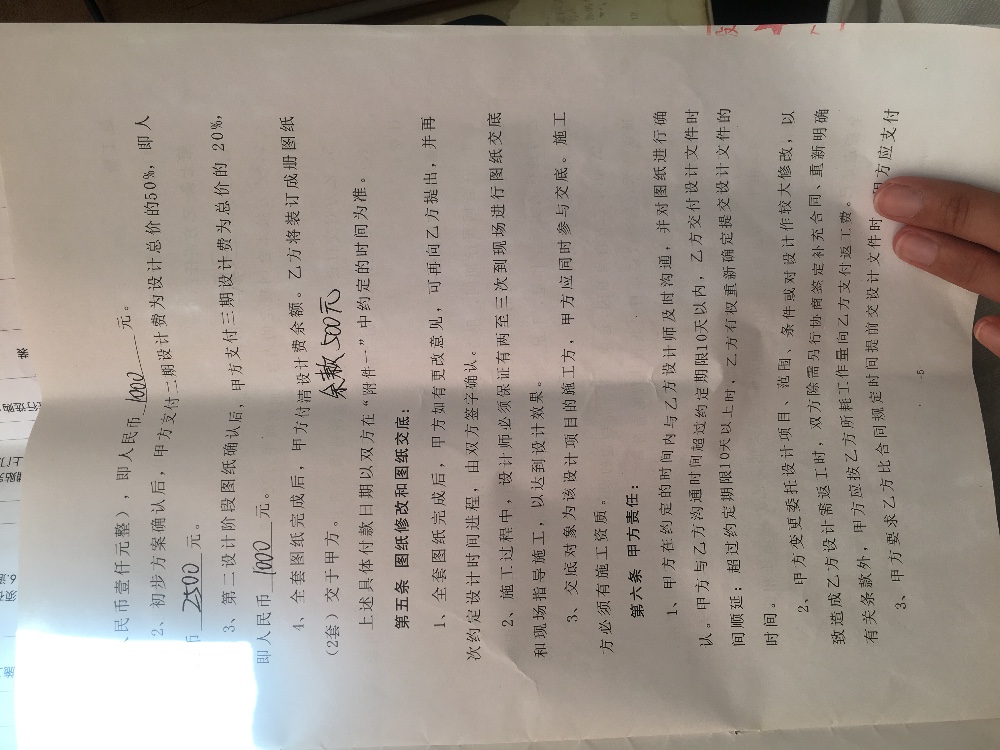 民币壹仟元整），即人民币 1000 元。
2、初步方案确认后，甲方支付二期设计费为设计总价的50%，即人
币 2500 元。
3、第二设计阶段图纸确认后，甲方支付三期设计费为总价的 20%，
即人民币 1000 元。
4、全套图纸完成后，甲方付清设计费余额。乙方将装订成册图纸
（2套）交于甲方。 余款500元
上述具体付款日期以双方在“附件一”中约定的时间为准。
第五条 图纸修改和图纸交底：
1、全套图纸完成后，甲方如有更改意见，可再向乙方提出，并再
次约定设计时间进程，由双方签字确认。
2、施工过程中，设计师必须保证有两至三次到现场进行图纸交底
和现场指导施工，以达到设计效果。
3、交底对象为该设计项目的施工方，甲方应同时参与交底。施工
方必须有施工资质。
第六条 甲方责任：
1、甲方在约定的时间内与乙方设计师及时沟通，并对图纸进行确
认。甲方与乙方沟通时间超过约定期限10天以内，乙方交付设计文件时
间顺延；超过约定期限10天以上时，乙方有权重新确定提交设计文件的
时间。
2、甲方变更委托设计项目、范围、条件或对设计作较大修改，以
致造成乙方设计需返工时，双方除需另行协商签定补充合同、重新明确
有关条款外，甲方应按乙方所耗工作量向乙方支付返工费。
3、甲方要求乙方比合同规定时间提前交设计文件时 甲方应支付
5